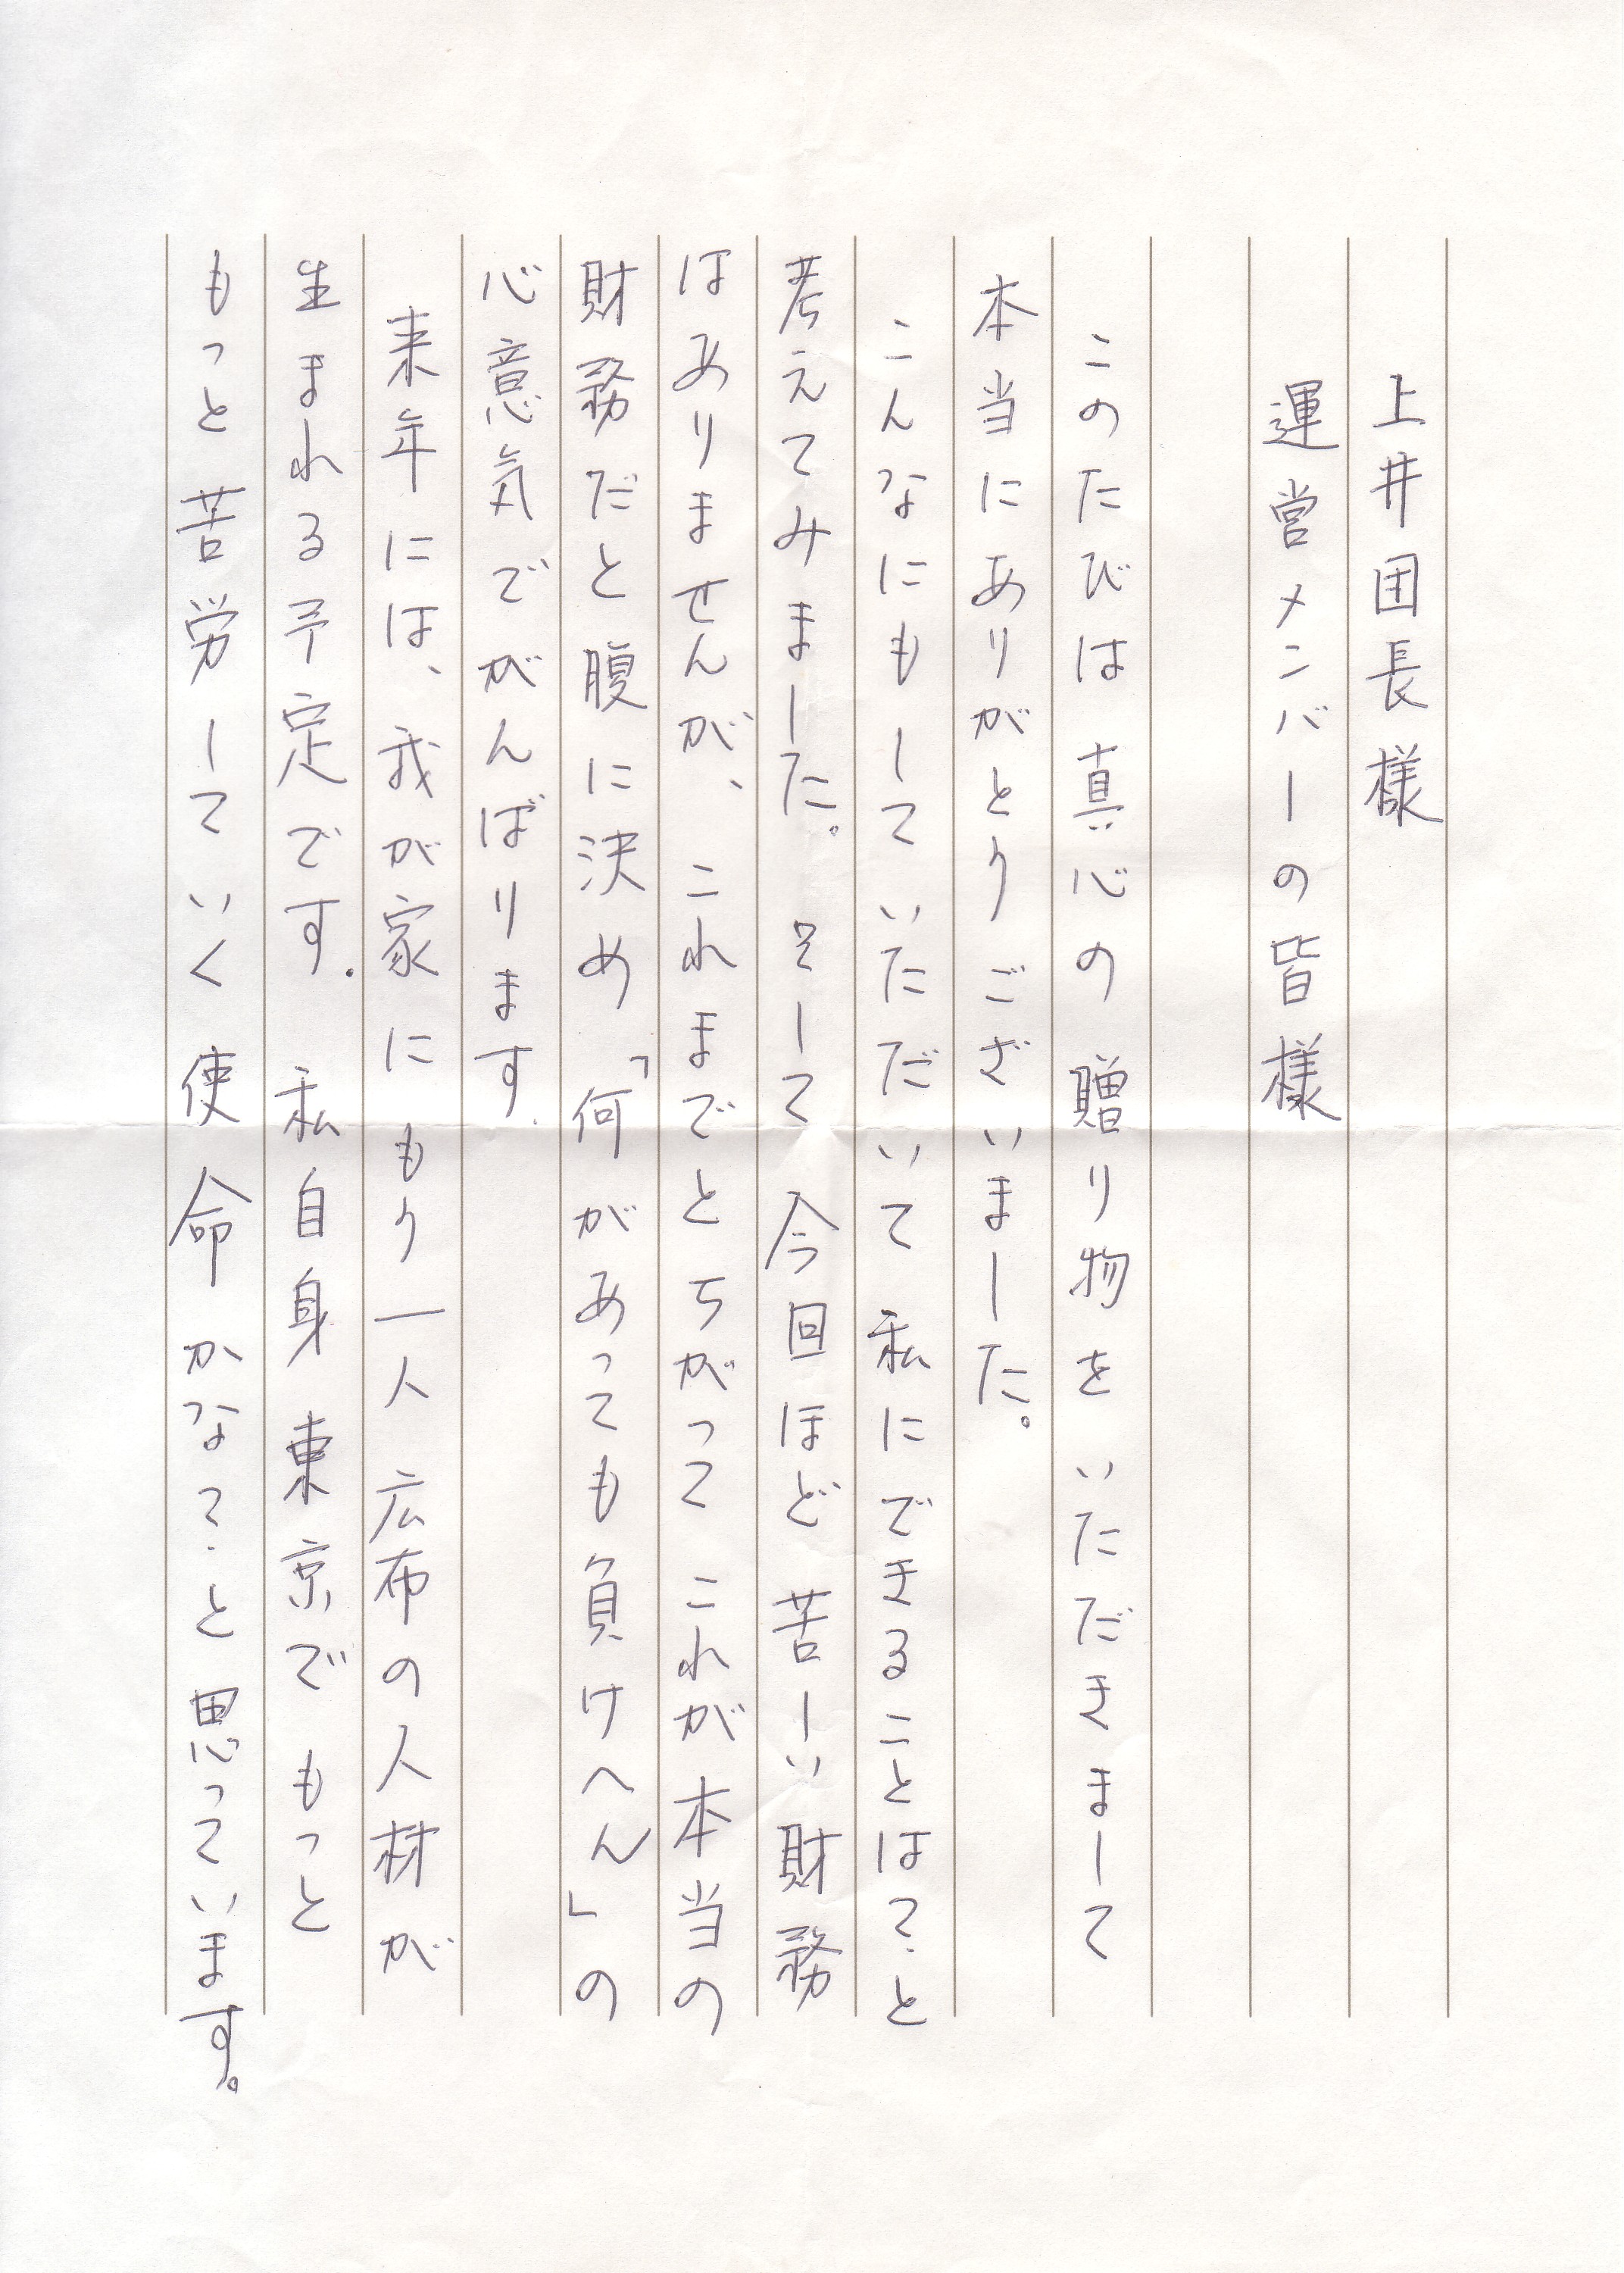 上井団長様
運営メンバーの皆様
このたびは真心の贈り物をいただきまして
本当にありがとうございました。
こんなにもしていただいて私にできることは?と
考えてみました。そして今回ほど苦しい財務
はありませんが、これまでとちがってこれが本当の
財務だと腹に決め「何があっても負けへん」の
心意気でがんばります。
来年には、我が家にもう一人広布の人材が
生まれる予定です。私自身東京でもっと
もっと苦労していく使命かな?と思っています。